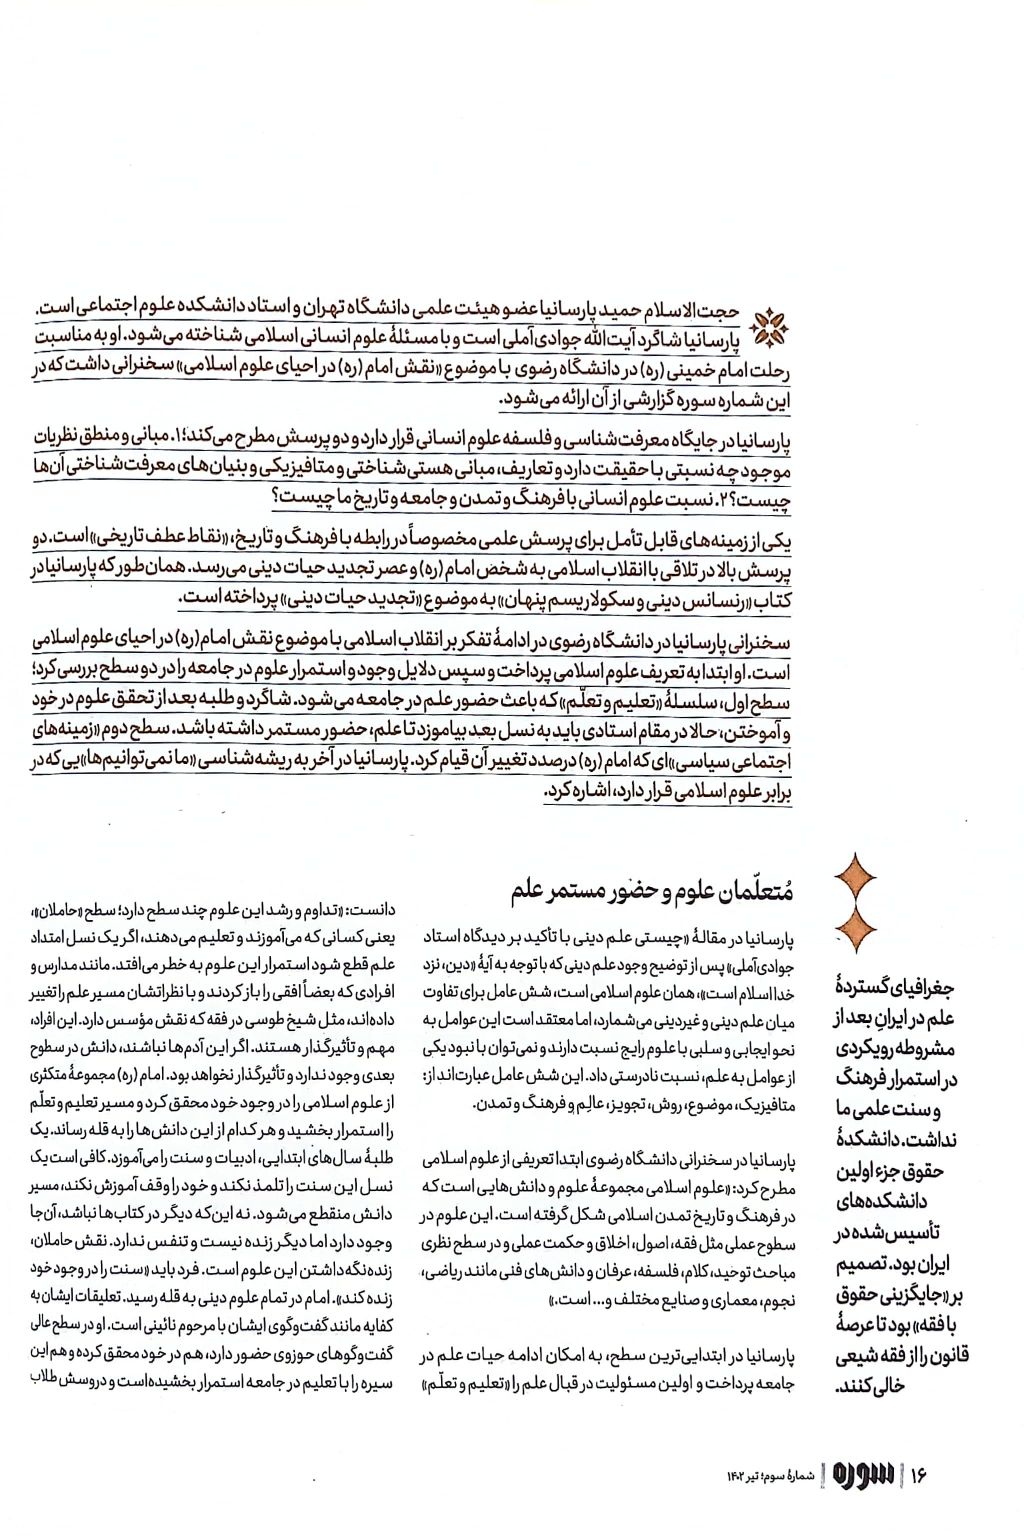 حجت‌الاسلام حمید پارسانیا عضو هیئت علمی دانشگاه تهران و استاد دانشکده علوم اجتماعی است.
پارسانیا شاگرد آیت‌الله جوادی‌آملی است و با مسئلهٔ علوم انسانی اسلامی شناخته می‌شود. او به مناسبت
رحلت امام خمینی (ره) در دانشگاه رضوی با موضوع «نقش امام (ره) در احیای علوم اسلامی» سخنرانی داشت که در
این شماره سوره گزارشی از آن ارائه می‌شود.
پارسانیا در جایگاه معرفت‌شناسی و فلسفه علوم انسانی قرار دارد و دو پرسش مطرح می‌کند؛ ۱. مبانی و منطق نظریات
موجود چه نسبتی با حقیقت دارد و تعاریف، مبانی هستی‌شناختی و متافیزیکی و بنیان‌های معرفت‌شناختی آن‌ها
چیست؟ ۲. نسبت علوم انسانی با فرهنگ و تمدن و جامعه و تاریخ ما چیست؟
یکی از زمینه‌های قابل تأمل برای پرسش علمی مخصوصاً در رابطه با فرهنگ و تاریخ، «نقاط عطف تاریخی» است. دو
پرسش بالا در تلاقی با انقلاب اسلامی به شخص امام (ره) و عصر تجدید حیات دینی می‌رسد. همان‌طور که پارسانیا در
کتاب «رنسانس دینی و سکولاریسم پنهان» به موضوع «تجدید حیات دینی» پرداخته است.
سخنرانی پارسانیا در دانشگاه رضوی در ادامهٔ تفکر بر انقلاب اسلامی با موضوع نقش امام(ره) در احیای علوم اسلامی
است. او ابتدا به تعریف علوم اسلامی پرداخت و سپس دلایل وجود و استمرار علوم در جامعه را در دو سطح بررسی کرد؛
سطح اول، سلسلهٔ «تعلیم و تعلّم» که باعث حضور علم در جامعه می‌شود. شاگرد و طلبه بعد از تحقق علوم در خود
و آموختن، حالا در مقام استادی باید به نسل بعد بیاموزد تا علم، حضور مستمر داشته باشد. سطح دوم «زمینه‌های
اجتماعی سیاسی»ای که امام (ره) درصدد تغییر آن قیام کرد. پارسانیا در آخر به ریشه‌شناسی «ما نمی‌توانیم‌ها»یی که در
برابر علوم اسلامی قرار دارد، اشاره کرد.
مُتعلّمان علوم و حضور مستمر علم
پارسانیا در مقالهٔ «چیستی علم دینی با تأکید بر دیدگاه استاد
جوادی‌آملی» پس از توضیح وجود علم دینی که با توجه به آیهٔ «دین، نزد
خدا اسلام است»، همان علوم اسلامی است، شش عامل برای تفاوت
میان علم دینی و غیردینی می‌شمارد، اما معتقد است این عوامل به
نحو ایجابی و سلبی با علوم رایج نسبت دارند و نمی‌توان با نبود یکی
از عوامل به علم، نسبت نادرستی داد. این شش عامل عبارت‌اند از:
متافیزیک، موضوع، روش، تجویز، عالِم و فرهنگ و تمدن.
پارسانیا در سخنرانی دانشگاه رضوی ابتدا تعریفی از علوم اسلامی
مطرح کرد: «علوم اسلامی مجموعهٔ علوم و دانش‌هایی است که
در فرهنگ و تاریخ تمدن اسلامی شکل گرفته است. این علوم در
سطوح عملی مثل فقه، اصول، اخلاق و حکمت عملی و در سطح نظری
مباحث توحید، کلام، فلسفه، عرفان و دانش‌های فنی مانند ریاضی،
نجوم، معماری و صنایع مختلف و... است.»
پارسانیا در ابتدایی‌ترین سطح، به امکان ادامه حیات علم در
جامعه پرداخت و اولین مسئولیت در قبال علم را «تعلیم و تعلّم»
دانست: «تداوم و رشد این علوم چند سطح دارد؛ سطح «حاملان»،
یعنی کسانی که می‌آموزند و تعلیم می‌دهند، اگر یک نسل امتداد
علم قطع شود استمرار این علوم به خطر می‌افتد. مانند مدارس و
افرادی که بعضاً افقی را باز کردند و با نظراتشان مسیر علم را تغییر
داده‌اند، مثل شیخ طوسی در فقه که نقش مؤسس دارد. این افراد،
مهم و تأثیرگذار هستند. اگر این آدم‌ها نباشند، دانش در سطوح
بعدی وجود ندارد و تأثیرگذار نخواهد بود. امام (ره) مجموعهٔ متکثری
از علوم اسلامی را در وجود خود محقق کرد و مسیر تعلیم و تعلّم
را استمرار بخشید و هر کدام از این دانش‌ها را به قله رساند. یک
طلبهٔ سال‌های ابتدایی، ادبیات و سنت را می‌آموزد. کافی است یک
نسل این سنت را تلمذ نکند و خود را وقف آموزش نکند، مسیر
دانش منقطع می‌شود. نه این‌که دیگر در کتاب‌ها نباشد، آن‌جا
وجود دارد اما دیگر زنده نیست و تنفس ندارد. نقش حاملان،
زنده نگه داشتن این علوم است. فرد باید «سنت را در وجود خود
زنده کند». امام در تمام علوم دینی به قله رسید. تعلیقات ایشان به
کفایه مانند گفت‌وگوی ایشان با مرحوم نائینی است. او در سطح عالی
گفت‌وگوهای حوزوی حضور دارد، هم در خود محقق کرده و هم این
سیره را با تعلیم در جامعه استمرار بخشیده است و دروسش طلاب
جغرافیای گستردهٔ
علم در ایرانِ بعد از
مشروطه رویکردی
در استمرار فرهنگ
و سنت علمی ما
نداشت. دانشکدهٔ
حقوق جزء اولین
دانشکده‌های
تأسیس‌شده در
ایران بود. تصمیم
بر «جایگزینی حقوق
با فقه» بود تا عرصهٔ
قانون را از فقه شیعی
خالی کنند.
۱۶ | سوره | شمارهٔ سوم؛ تیر ۱۴۰۲